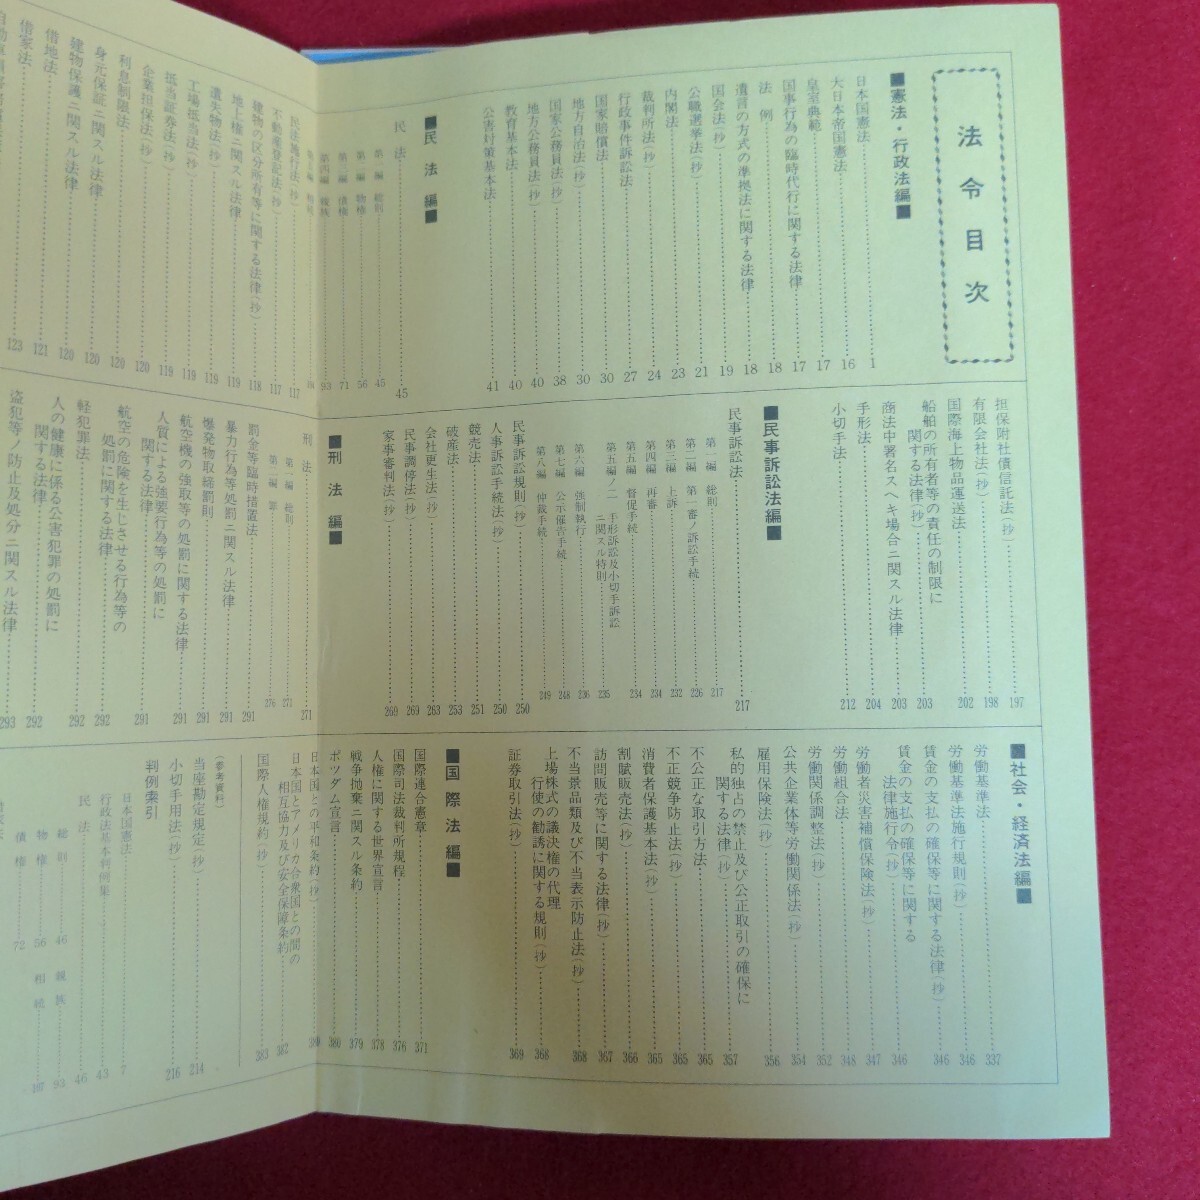 法令目次
■憲法・行政法編■
日本国憲法……1
大日本帝国憲法……16
皇室典範……17
国事行為の臨時代行に関する法律……17
法例……18
遺言の方式の準拠法に関する法律……18
国会法(抄)……19
公職選挙法(抄)……21
内閣法……23
裁判所法(抄)……24
行政事件訴訟法……27
国家賠償法……30
地方自治法(抄)……30
国家公務員法(抄)……38
地方公務員法(抄)……40
教育基本法……40
公害対策基本法……41
■民法編■
民法……45
第一編 総則……45
第二編 物権……56
第三編 債権……71
第四編 親族……93
民法施行法(抄)……117
不動産登記法(抄)……117
建物の区分所有等に関する法律(抄)……118
地上権ニ関スル法律……119
遺失物法(抄)……119
工場抵当法(抄)……119
抵当証券法(抄)……119
企業担保法(抄)……120
利息制限法……120
身元保証ニ関スル法律……120
建物保護ニ関スル法律……120
借地法……121
借家法……123
担保附社債信託法(抄)……197
有限会社法(抄)……198
国際海上物品運送法……202
船舶の所有者等の責任の制限に
関する法律(抄)……203
商法中署名スヘキ場合ニ関スル法律……203
手形法……204
小切手法……212
■民事訴訟法編■
民事訴訟法……217
第一編 総則……217
第二編 第一審ノ訴訟手続……226
第三編 上訴……232
第四編 再審……234
第五編 督促手続……234
第五編ノ二 手形訴訟及小切手訴訟
ニ関スル特則……235
第六編 強制執行……236
第七編 公示催告手続……248
第八編 仲裁手続……249
民事訴訟規則(抄)……250
人事訴訟手続法(抄)……250
競売法……251
破産法……253
会社更生法(抄)……263
民事調停法(抄)……269
家事審判法(抄)……269
■刑法編■
刑法……271
第一編 総則……271
第二編 罪……276
罰金等臨時措置法……291
暴力行為等処罰ニ関スル法律……291
爆発物取締罰則……291
航空機の強取等の処罰に関する法律……291
人質による強要行為等の処罰に
関する法律……291
航空の危険を生じさせる行為等の
処罰に関する法律……292
軽犯罪法……292
人の健康に係る公害犯罪の処罰に
関する法律……292
盗犯等ノ防止及処分ニ関スル法律……293
■社会・経済法編■
労働基準法……337
労働基準法施行規則(抄)……346
賃金の支払の確保等に関する法律(抄)……346
賃金の支払の確保等に関する
法律施行令(抄)……346
労働者災害補償保険法(抄)……347
労働組合法……348
労働関係調整法(抄)……352
公共企業体等労働関係法(抄)……354
雇用保険法(抄)……356
私的独占の禁止及び公正取引の確保に
関する法律(抄)……357
不公正な取引方法……365
不正競争防止法(抄)……365
消費者保護基本法(抄)……365
割賦販売法(抄)……366
訪問販売等に関する法律(抄)……367
不当景品類及び不当表示防止法(抄)……368
上場株式の議決権の代理
行使の勧誘に関する規則(抄)……368
証券取引法(抄)……369
■国際法編■
国際連合憲章……371
国際司法裁判所規程……376
人権に関する世界宣言……378
戦争抛棄ニ関スル条約……379
ポツダム宣言……380
日本国との平和条約(抄)……380
日本国とアメリカ合衆国との間の
相互協力及び安全保障条約……382
国際人権規約(抄)……383
(参考資料)
当座勘定規定(抄)……214
小切手用法(抄)……216
判例索引
日本国憲法……7
行政法基本判例集……43
民法……46
総則……46
親族……93
物権……56
相続……107
債権……72